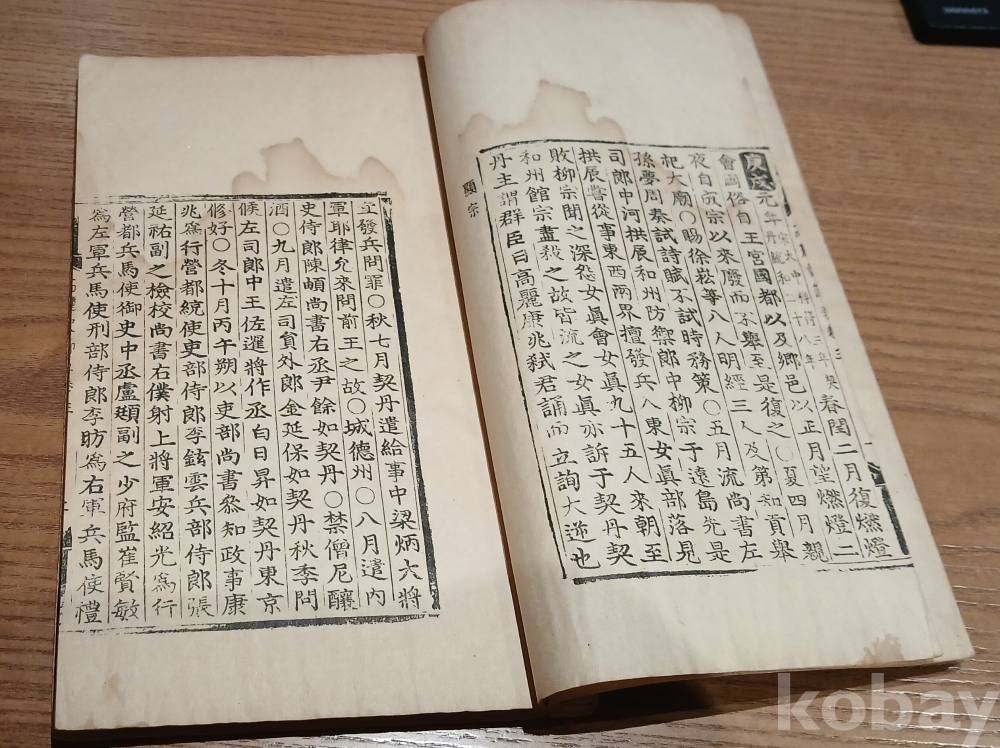 庚戌元年宋大中祥符三年契丹統和二十八年春閏二月復燃燈
會國俗自王宮國都以及鄕邑以正月望燃燈二
夜自成宗以來廢而不擧至是復之○夏四月親
祀大廟○賜徐崧等八人明經三人及第知貢擧
孫夢周奏試詩賦不試時務策○五月流尚書左
司郎中河拱辰和州防禦郎中柳宗于遠島先是
拱辰嘗從事東西兩界擅發兵入東女眞部落見
敗柳宗聞之深怨女眞會女眞九十五人來朝至
和州館宗盡殺之故皆流之女眞亦訴于契丹契
丹主謂群臣曰高麗康兆弒君誦而立詢大逆也
顯宗
宜發兵問罪○秋七月契丹遣給事中梁炳大將
軍耶律允來問前王之故○城德州○八月遣內
史侍郎陳頔尚書右丞尹餘如契丹○禁僧尼釀
酒○九月遣左司員外郎金延保如契丹秋季問
候左司郎中王佐暹將作丞白日昇如契丹東京
修好○冬十月丙午朔以吏部尚書叅知政事康
兆爲行營都統使吏部侍郎李鉉雲兵部侍郎張
延祐副之檢校尚書右僕射上將軍安紹光爲行
營都兵馬使御史中丞盧頲副之少府監崔賢敏
爲左軍兵馬使刑部侍郎李昉爲右軍兵馬使禮
kobay